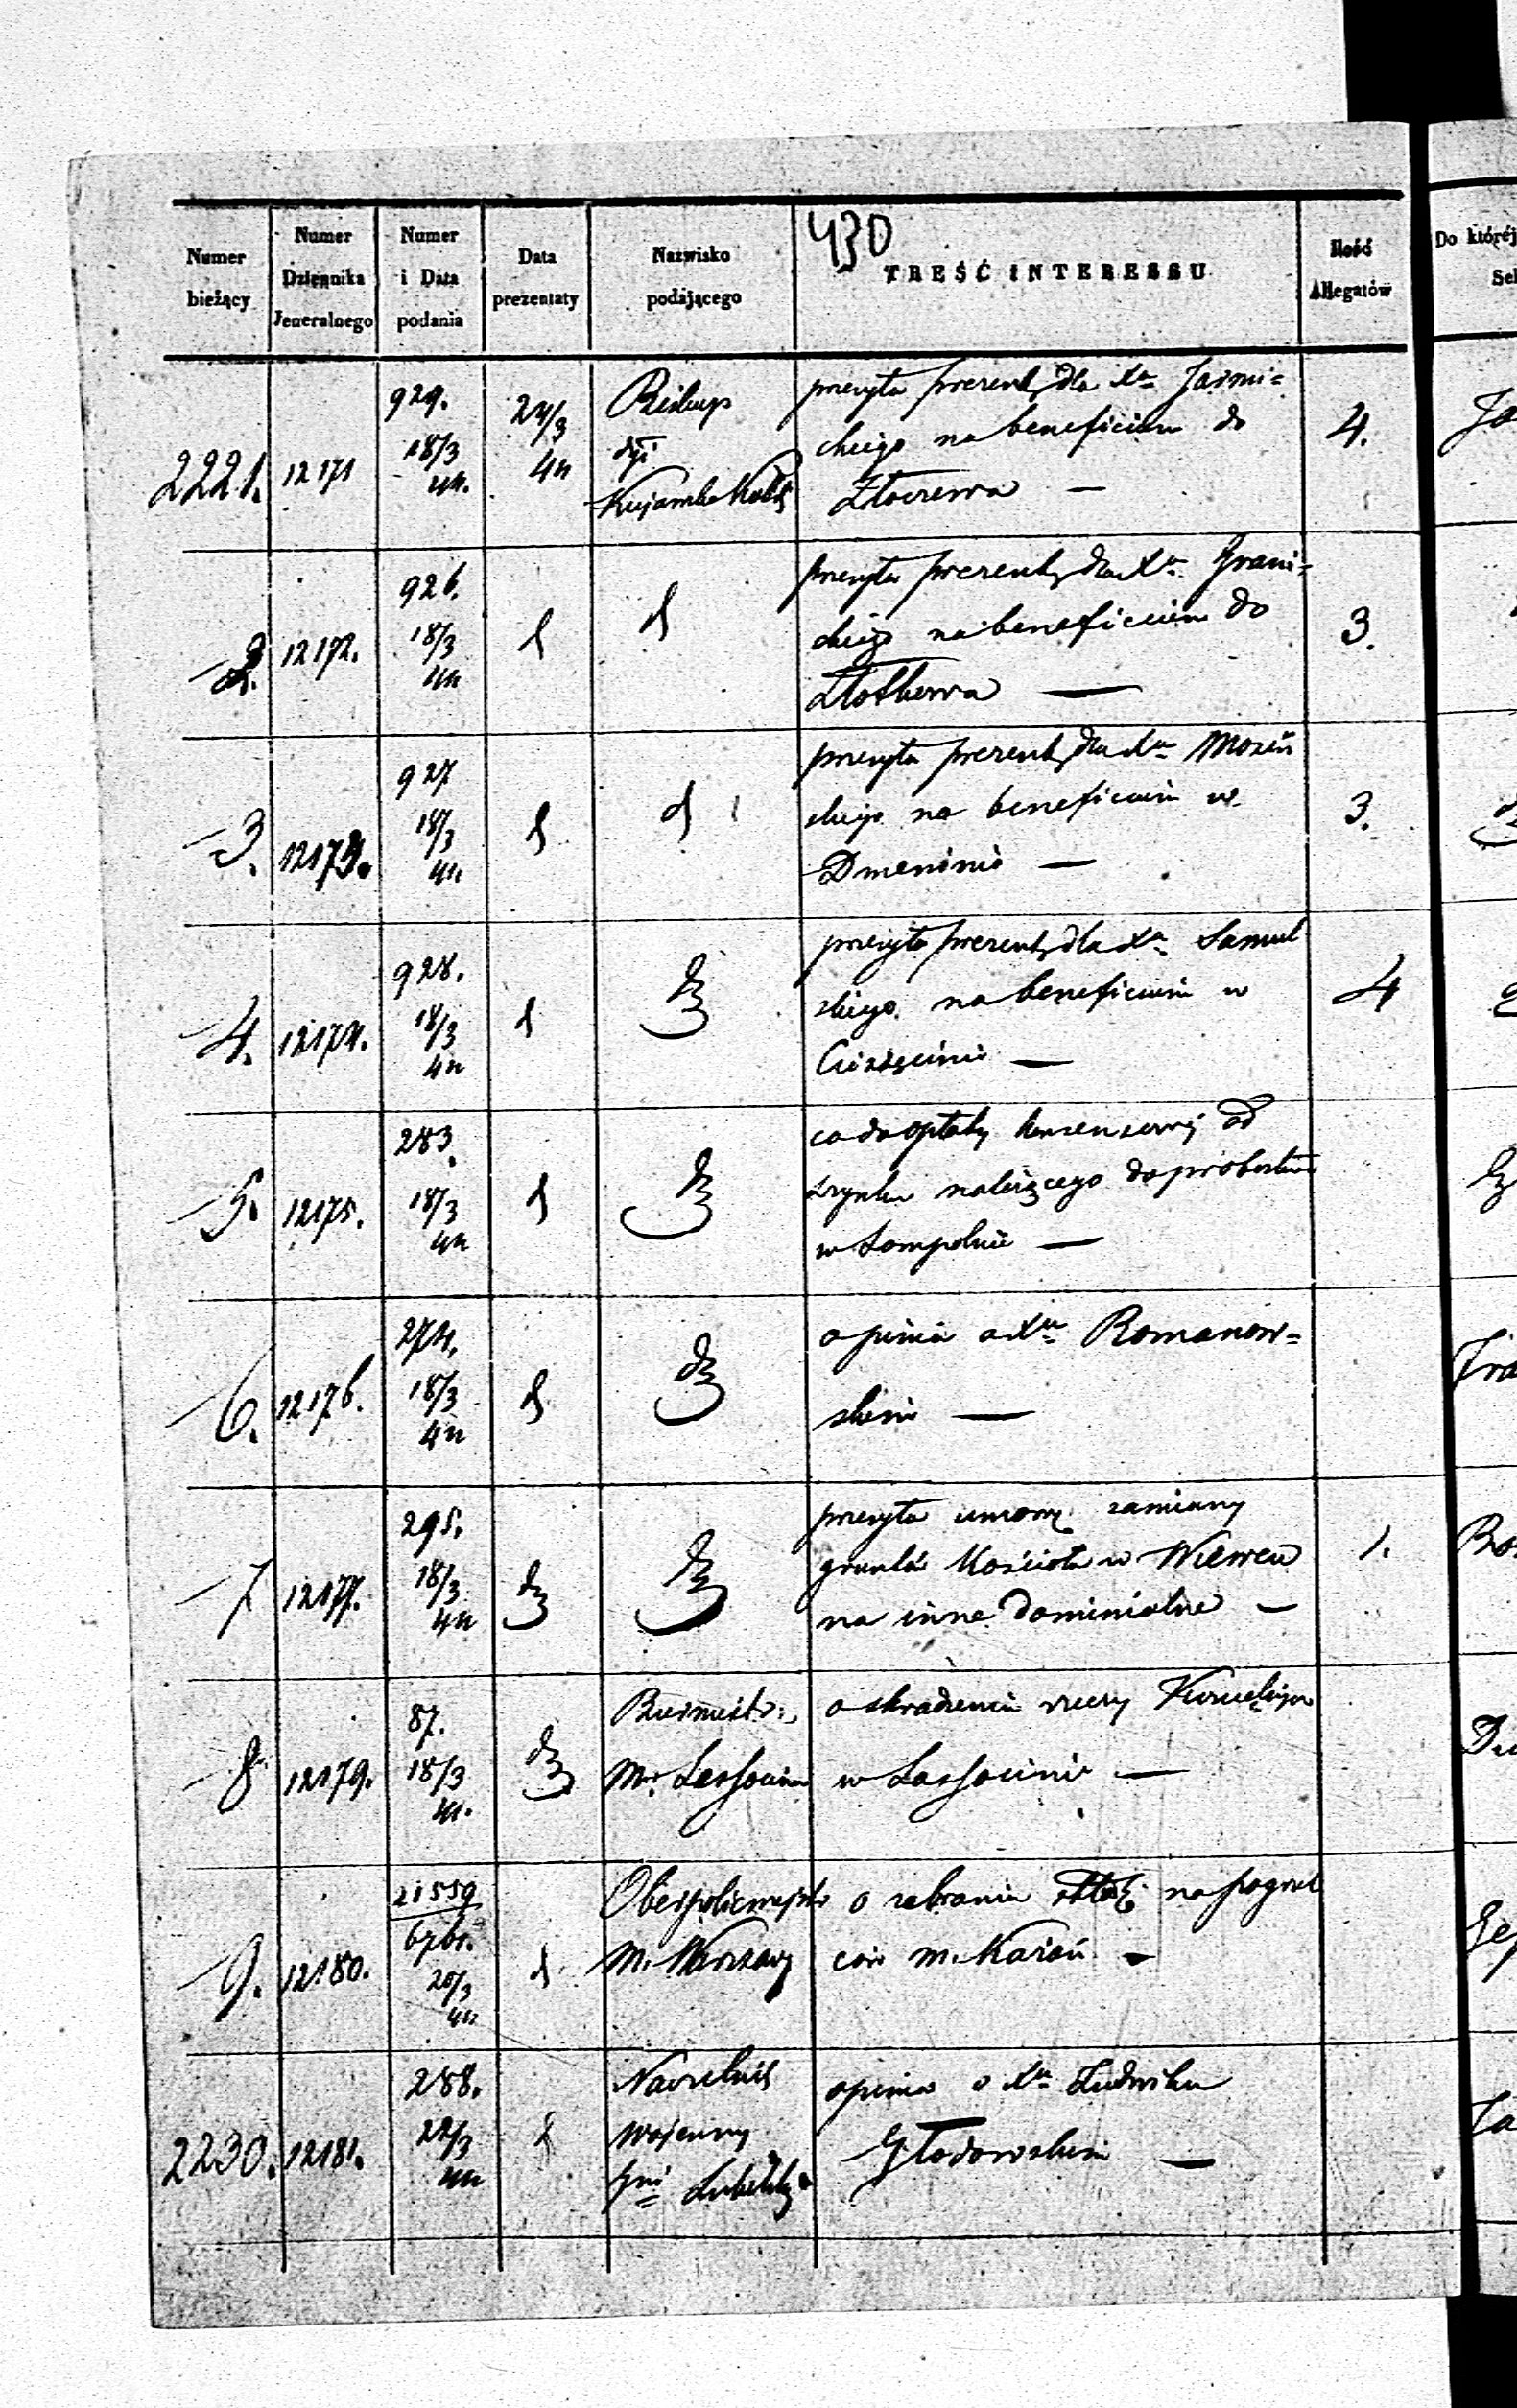 430
Numer bieżący
Numer Dziennika Jeneralnego
Numer i Data podania
Data prezentaty
Nazwisko podającego
TREŚĆ INTERESSU
Ilość Allegatów
Do której
2221. 12171 929. 18/3 44. 24/3 44 Biskup
przesyła prezentę dla Xa Jasmi=
skiego na beneficium do
Złoczewa — 4.
2. 12172. 926. 18/3 44 d d
przesyła prezentę dla Xa Grani=
ckiego na beneficium do
3.
3. 12173. 927 18/3 44 d d
przesyła prezentę dla Xa Moziń
skiego na beneficium w
Dmeninie — 3.
4. 12174. 928. 18/3 44 d dz
przesyła prezentę dla Xa Samul
skiego na beneficium w
4
5. 12175. 283. 18/3 44 d dz
co do opłaty konsensowej od
szynku należącego do probostwa
w Sompolnie —
6. 12176. 274. 18/3 44 d dz
opinia o Xu Romanow=
skim —
7 12177. 295. 18/3 44 dz dz
przesyła umowę zamiany
gruntów Kościoła w
na inne dominialne — 1.
8 12179. 87. 18/3 44. dz Burmistrz
M. Lassocina
o skradzeniu rzeczy
w Lassocinie —
9. 12180. 21559 20/3 44 d Oberpolicmajstr
M. Warszawy
o zebraniu składki na pogorzel
ców m. Kazań —
2230. 12181. 288. 22/3 44 d Naczelnik
Wojenny
Lubelskiej
opinia o Xu Ludwiku
Głodowskim —